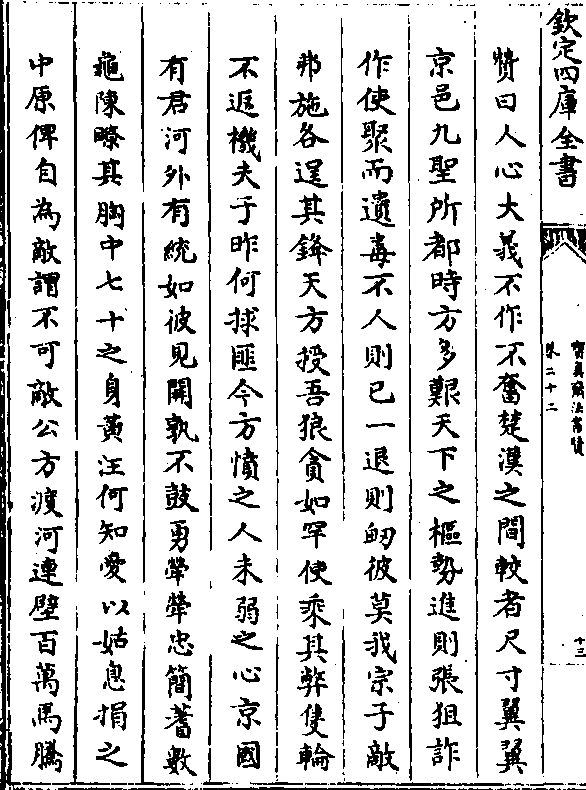 欽定四庫全書
寶真齋法書贊
卷二十二
十三
贊曰人心大義不作不奮楚漢之間較者尺寸翼翼
京邑九聖所都時方多艱天下之樞勢進則張狙詐
作使聚而遺毒不人則已一退則衂彼莫我宗子敵
邦施各逞其鋒天方授吾狼貪如罕使乘其弊隻輪
不返機夫于昨何捄匪今方憤之人未弱之心京國
有君河外有統如彼見開孰不鼓勇犖犖忠簡蓍數
龜陳瞭其胸中七十之身黃汪何知愛以姑息捐之
中原俾自為敵謂不可敵公方渡河連壁百萬馬騰